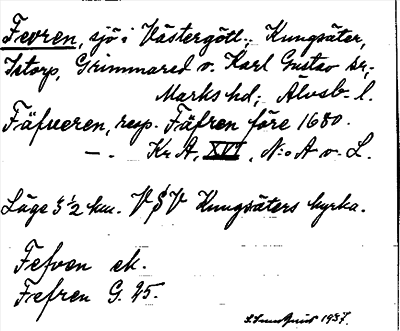 Fevren, sjö i Västergötl.; Kungsäter,
Istorp, Grimmared o. Karl Gustav sr,-
Marks hd; Älvsb. l.
Fäfveren, resp. Fäfren före 1680.
— . Kr. A. XVI, N:o A o. L.
Läge 3 1/2 km. V S V Kungsäters kyrka.
Fefven ek.
Frefren G. 95.
1937.